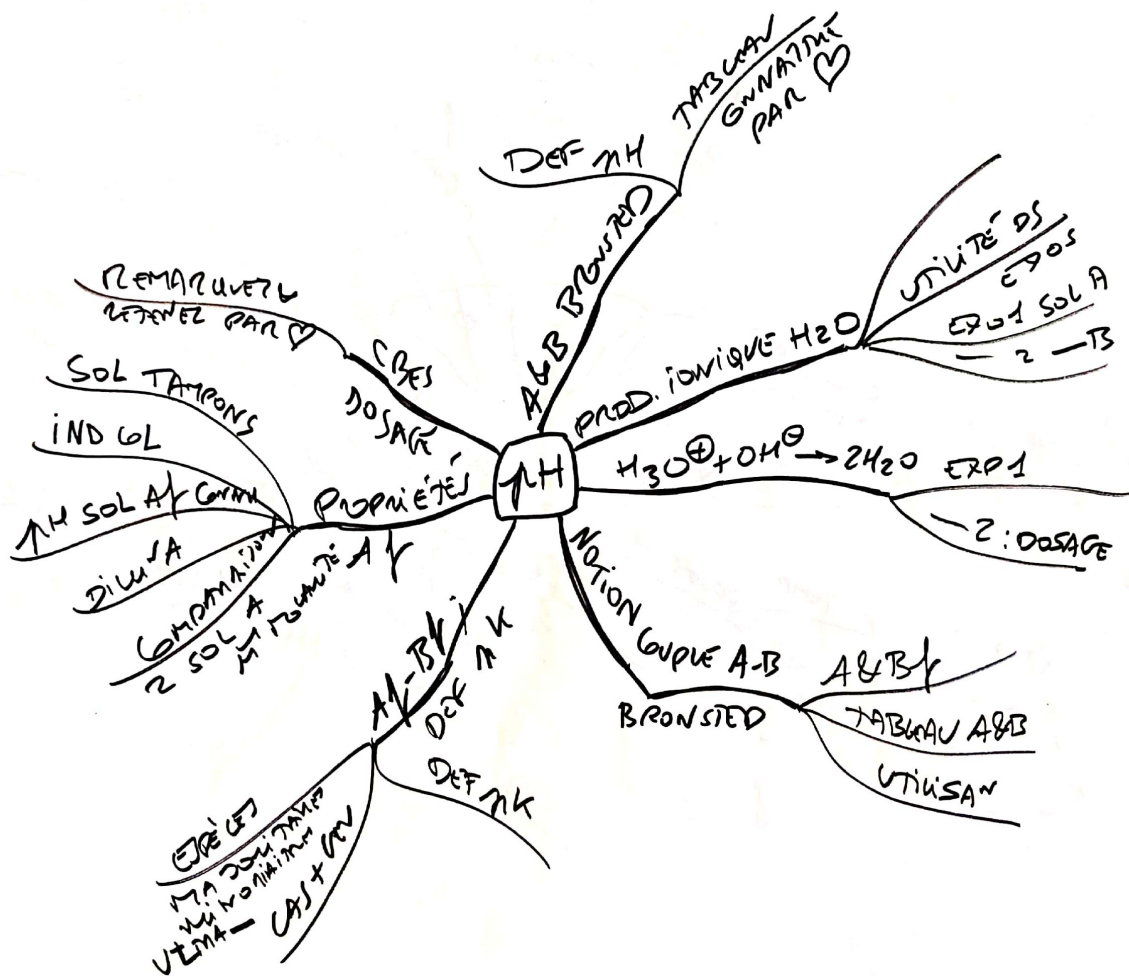 pH
A&B BRONSTED
DEF pH
TABLEAU
CONNAITRE
PAR ♡
PROD. IONIQUE H2O
UTILITÉ DS
EXOS
EXO1 SOL A
— 2 — B
H3O⊕ + OH⊖ → 2H2O
EXP1
— 2 : DOSAGE
NOTION COUPLE A-B
BRONSTED
A&Bf
TABLEAU A&B
UTILISAN
Af-Bf ;
DEF pK
DEF pK
CAS + GEN
ESPÈCES
MAJORITAIRES
MINORITAIRES
ULTMA—
PROPRIÉTÉS
Af
COMPARAISON
2 SOL A
M MOLARITÉ
DILU°A
pH SOL Af
IND COL
SOL TAMPONS
CBES
DOSAGE
REMARQUER &
RETENEZ PAR ♡